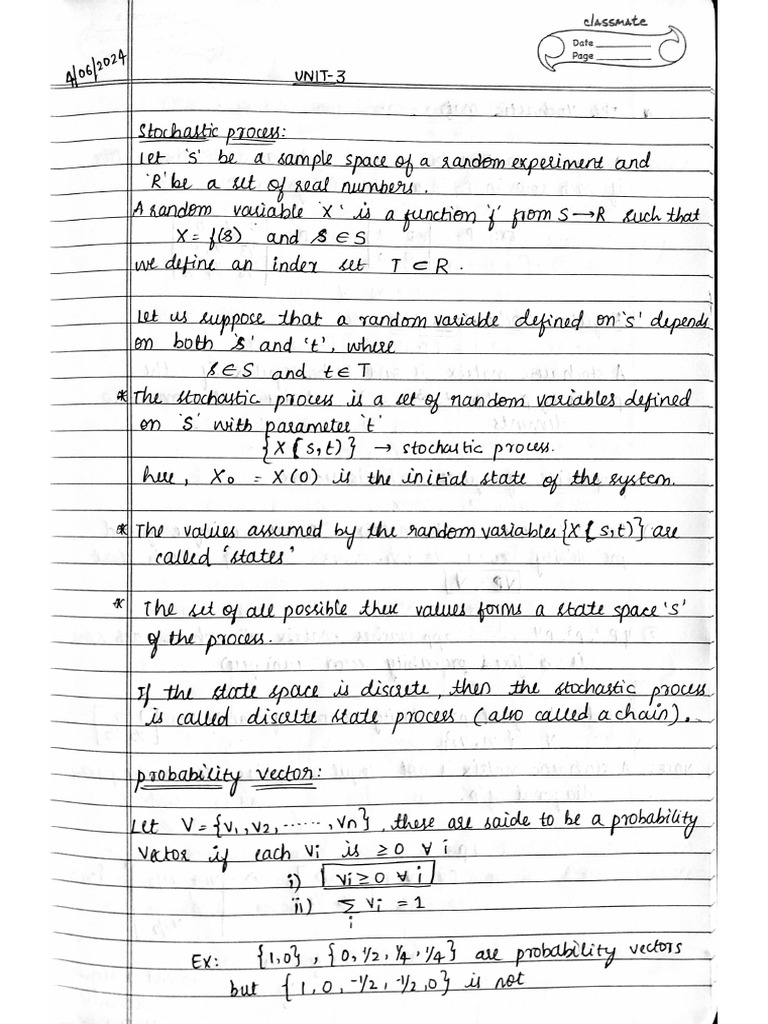 classmate
Date
Page
4/06/2024
UNIT-3
Stochastic process:
Let 'S' be a sample space of a random experiment and
'R' be a set of real numbers.
A random variable 'X' is a function 'f' from S→R such that
X = f(s) and s ∈ S
we define an index set T ⊂ R.
Let us suppose that a random variable defined on 's' depends
on both 's' and 't', where
s ∈ S and t ∈ T
* The stochastic process is a set of random variables defined
on 'S' with parameter 't'
{X(s,t)} → stochastic process.
here, X₀ = X(0) is the initial state of the system.
* The values assumed by the random variables {X(s,t)} are
called 'states'
* The set of all possible these values forms a state space 's'
of the process.
If the state space is discrete, then the stochastic process
is called discrete state process (also called a chain).
probability vector:
Let V = {v₁, v₂, ......, vn}, these are saide to be a probability
vector if each vi is ≥ 0 ∀ i
i) vi ≥ 0 ∀ i
ii) Σ vi = 1
i
Ex: {1,0}, {0, 1/2, 1/4, 1/4} are probability vectors
but {1, 0, -1/2, -1/2, 0} is not